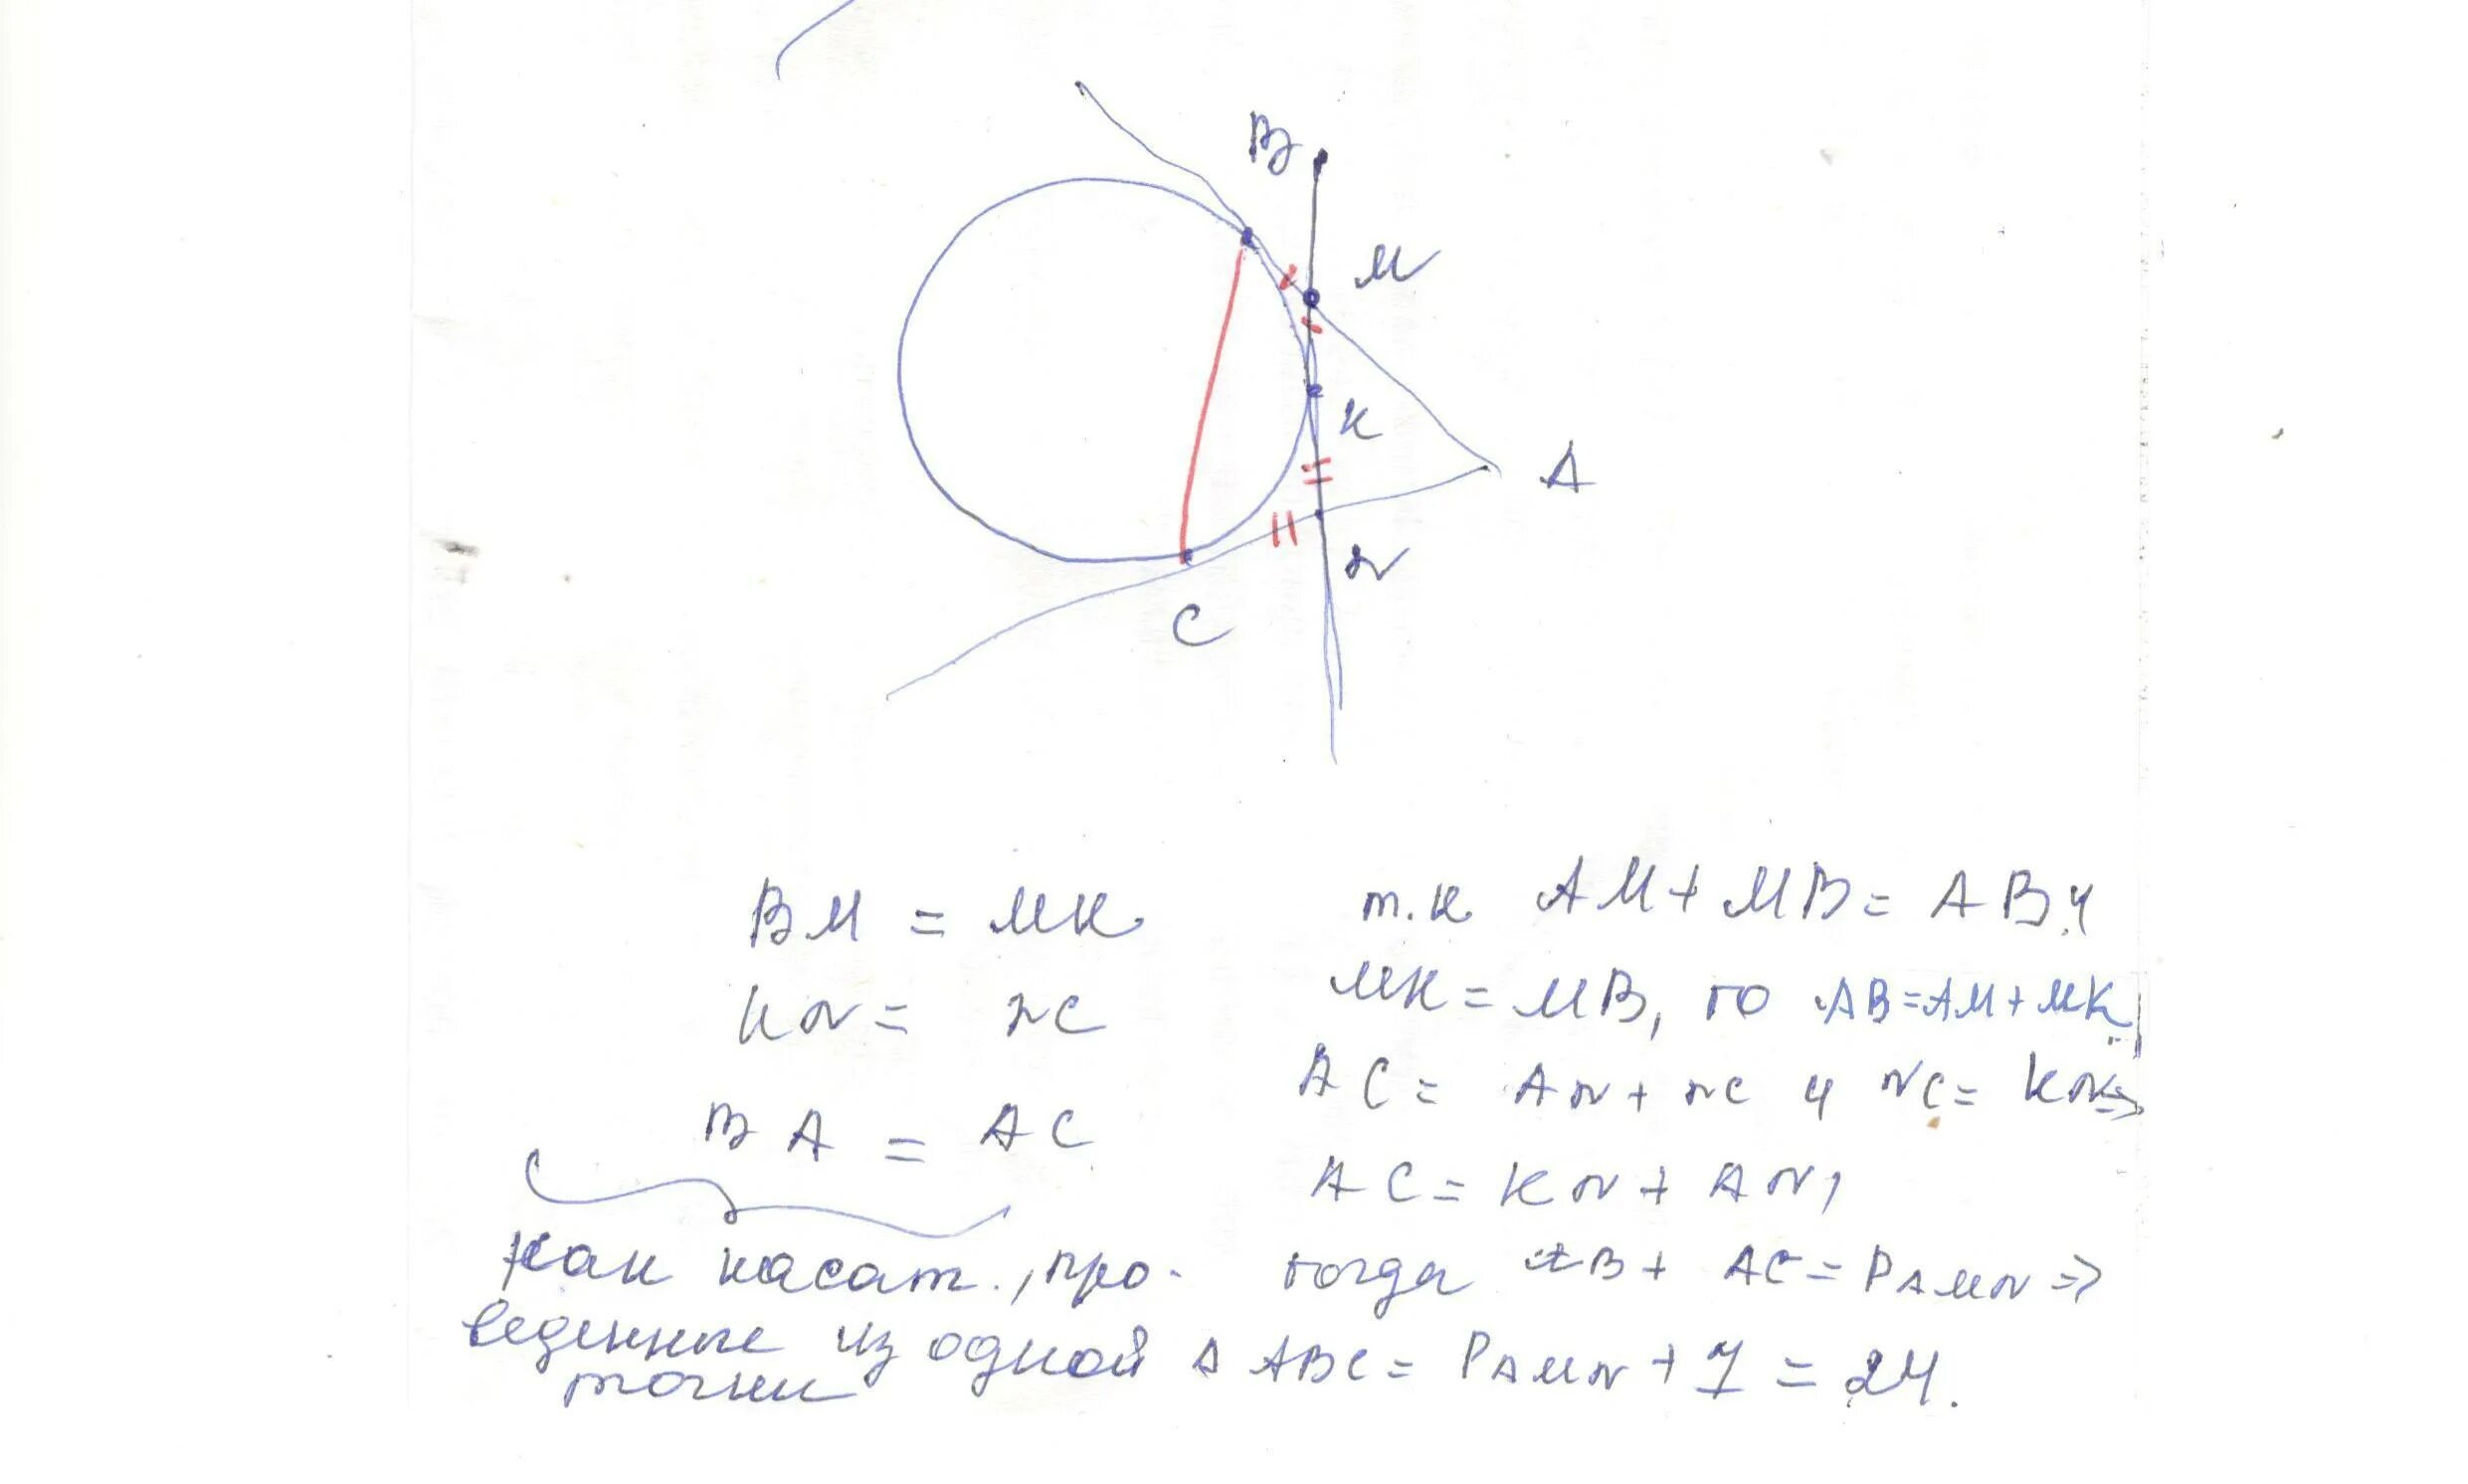 B
M
K
A
N
C
BM = MK
KN = NC
BA = AC
как касат., про-
веденные из одной
точки
т.к AM + MB = AB и
MK = MB, то AB = AM + MK
AC = AN + NC и NC = KN =>
AC = KN + AN,
тогда AB + AC = P AMN =>
Δ ABC = P AMN + 7 = 24.